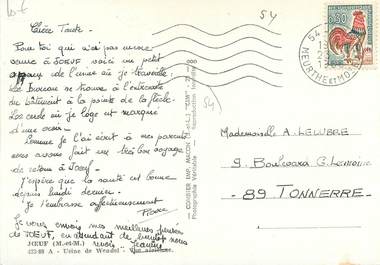 10 €
54
Chère Tante.
Pour toi qui n'as pas encore
venue à JOEUF voici un petit
aperçu de l'usine où je travaille.
Le bureau se trouve à l'extrémité
du bâtiment à la pointe de la flèche.
Le cercle où je loge est marqué
d'une croix.
Comme je l'ai écrit à mes parents
nous avons fait un très bon voyage
de retour à Joeuf.
J'espère que ta santé est bonne
depuis lundi dernier.
Je t'embrasse affectueusement
Pierre
Je vous envoie mes meilleures pensées
de JOEUF, en attendant de
vous Jeanine
JŒUF (M.-et-M.)
423-80 A - Usine de Wendel - Vue aérienne.
COMBIER IMP. MACON "CIM"
Photographie Véritable Reproduction interdite
54
0,30
MEURTHE ET MOSELLE
Mademoiselle A. LELIEVRE
9. Boulevard G. Lemoine
89 TONNERRE